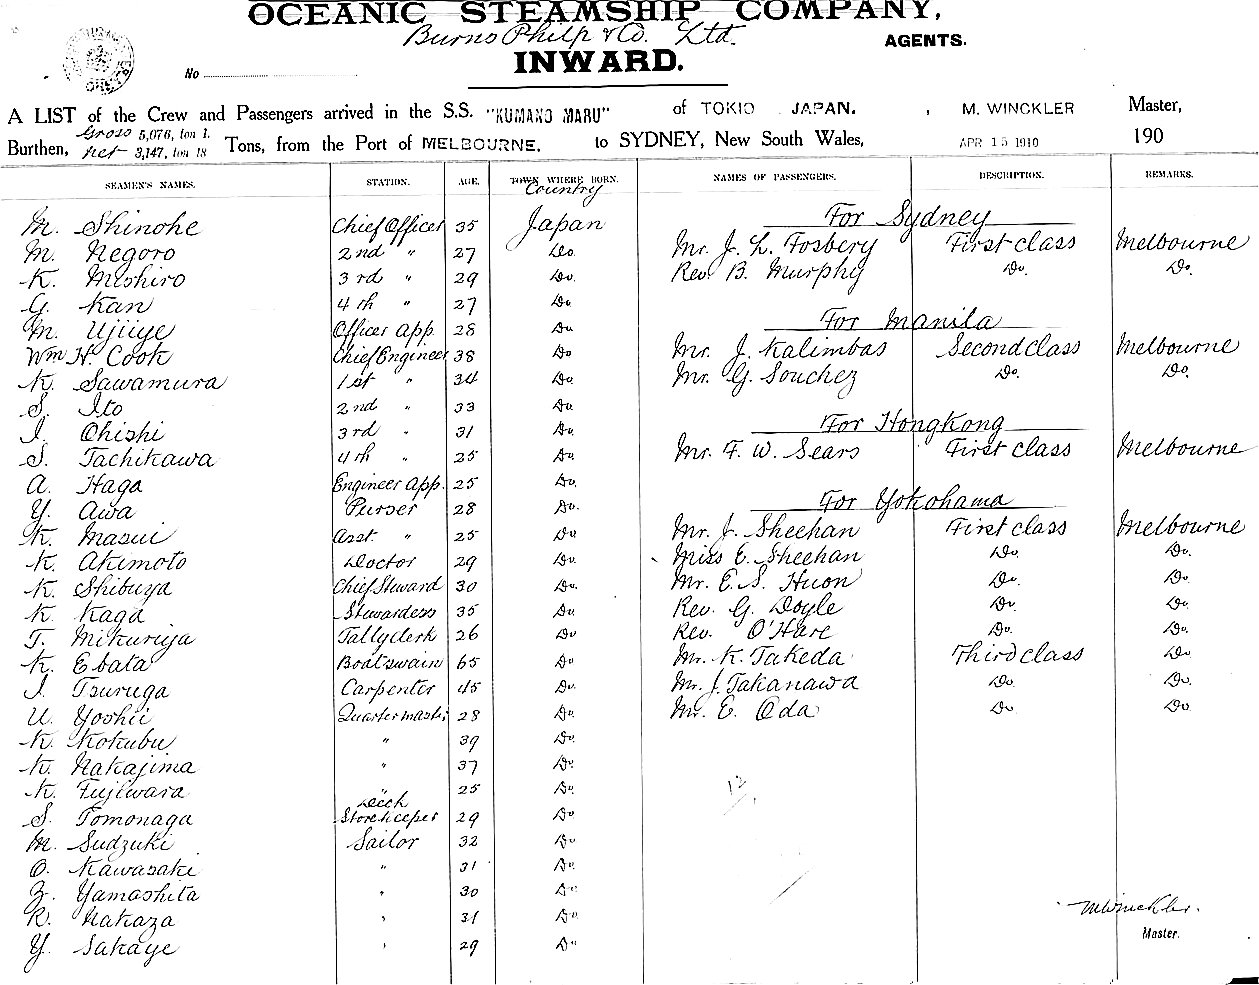 OCEANIC STEAMSHIP COMPANY,
Burns Philp & Co. Ltd.
AGENTS.
No
INWARD.
A LIST of the Crew and Passengers arrived in the S.S. "KUMANO MARU" of TOKIO JAPAN. , M. WINCKLER Master,
Burthen, Gross 5,076, ton 1. Tons, from the Port of MELBOURNE, to SYDNEY, New South Wales, APR 15 1910 190
net 3,147, ton 18
SEAMEN'S NAMES. STATION. AGE. TOWN WHERE BORN. NAMES OF PASSENGERS. DESCRIPTION. REMARKS.
Country
For Sydney
M. Shinohe Chief Officer 35 Japan
M. Negoro 2nd " 27 Do. Mr. J. L. Fosbery First class Melbourne
K. Mishiro 3rd " 29 Do. Rev. B. Murphy Do. Do.
G. Kan 4th " 27 Do
For Manila
M. Ujiiye Officer App. 28 Do
Wm H. Cook Chief Engineer 38 Do Mr. J. Kalimbas Second class Melbourne
K. Sawamura 1st " 34 Do. Mr. G. Souchez Do. Do.
S. Ito 2nd " 33 Do.
For Hongkong
I. Ohishi 3rd " 31 Do.
S. Tachikawa 4th " 25 Do Mr. F. W. Sears First class Melbourne
A. Haga Engineer App. 25 Do.
For Yokohama
Y. Awa Purser 28 Do.
K. Masui Asst " 25 Do Mr. J. Sheehan First class Melbourne
K. Akimoto Doctor 29 Do. Miss E. Sheehan Do. Do.
K. Shibuya Chief Steward 30 Do. Mr. E. S. Huon Do. Do.
K. Kaga Stewardess 35 Do Rev. G. Doyle Do. Do.
T. Mikuriya Tally clerk 26 Do Rev. O'Hare Do. Do.
K. Ebata Boatswain 65 Do Mr. K. Takeda Third class Do
I. Tsuruga Carpenter 45 Do. Mr. J. Takanawa Do. Do.
U. Yoshii Quartermaster 28 Do. Mr. E. Oda Do Do
K. Kokubu " 39 Do.
K. Nakajima " 37 Do
K. Fujiwara " 25 Do.
S. Tomonaga Deck Storekeeper 29 Do
M. Sudzuki Sailor 32 Do
O. Kawasaki " 31 Do
Z. Yamashita " 30 Do
R. Nakaza " 31 Do
Y. Sakaye " 29 Do
MWinckler.
Master.